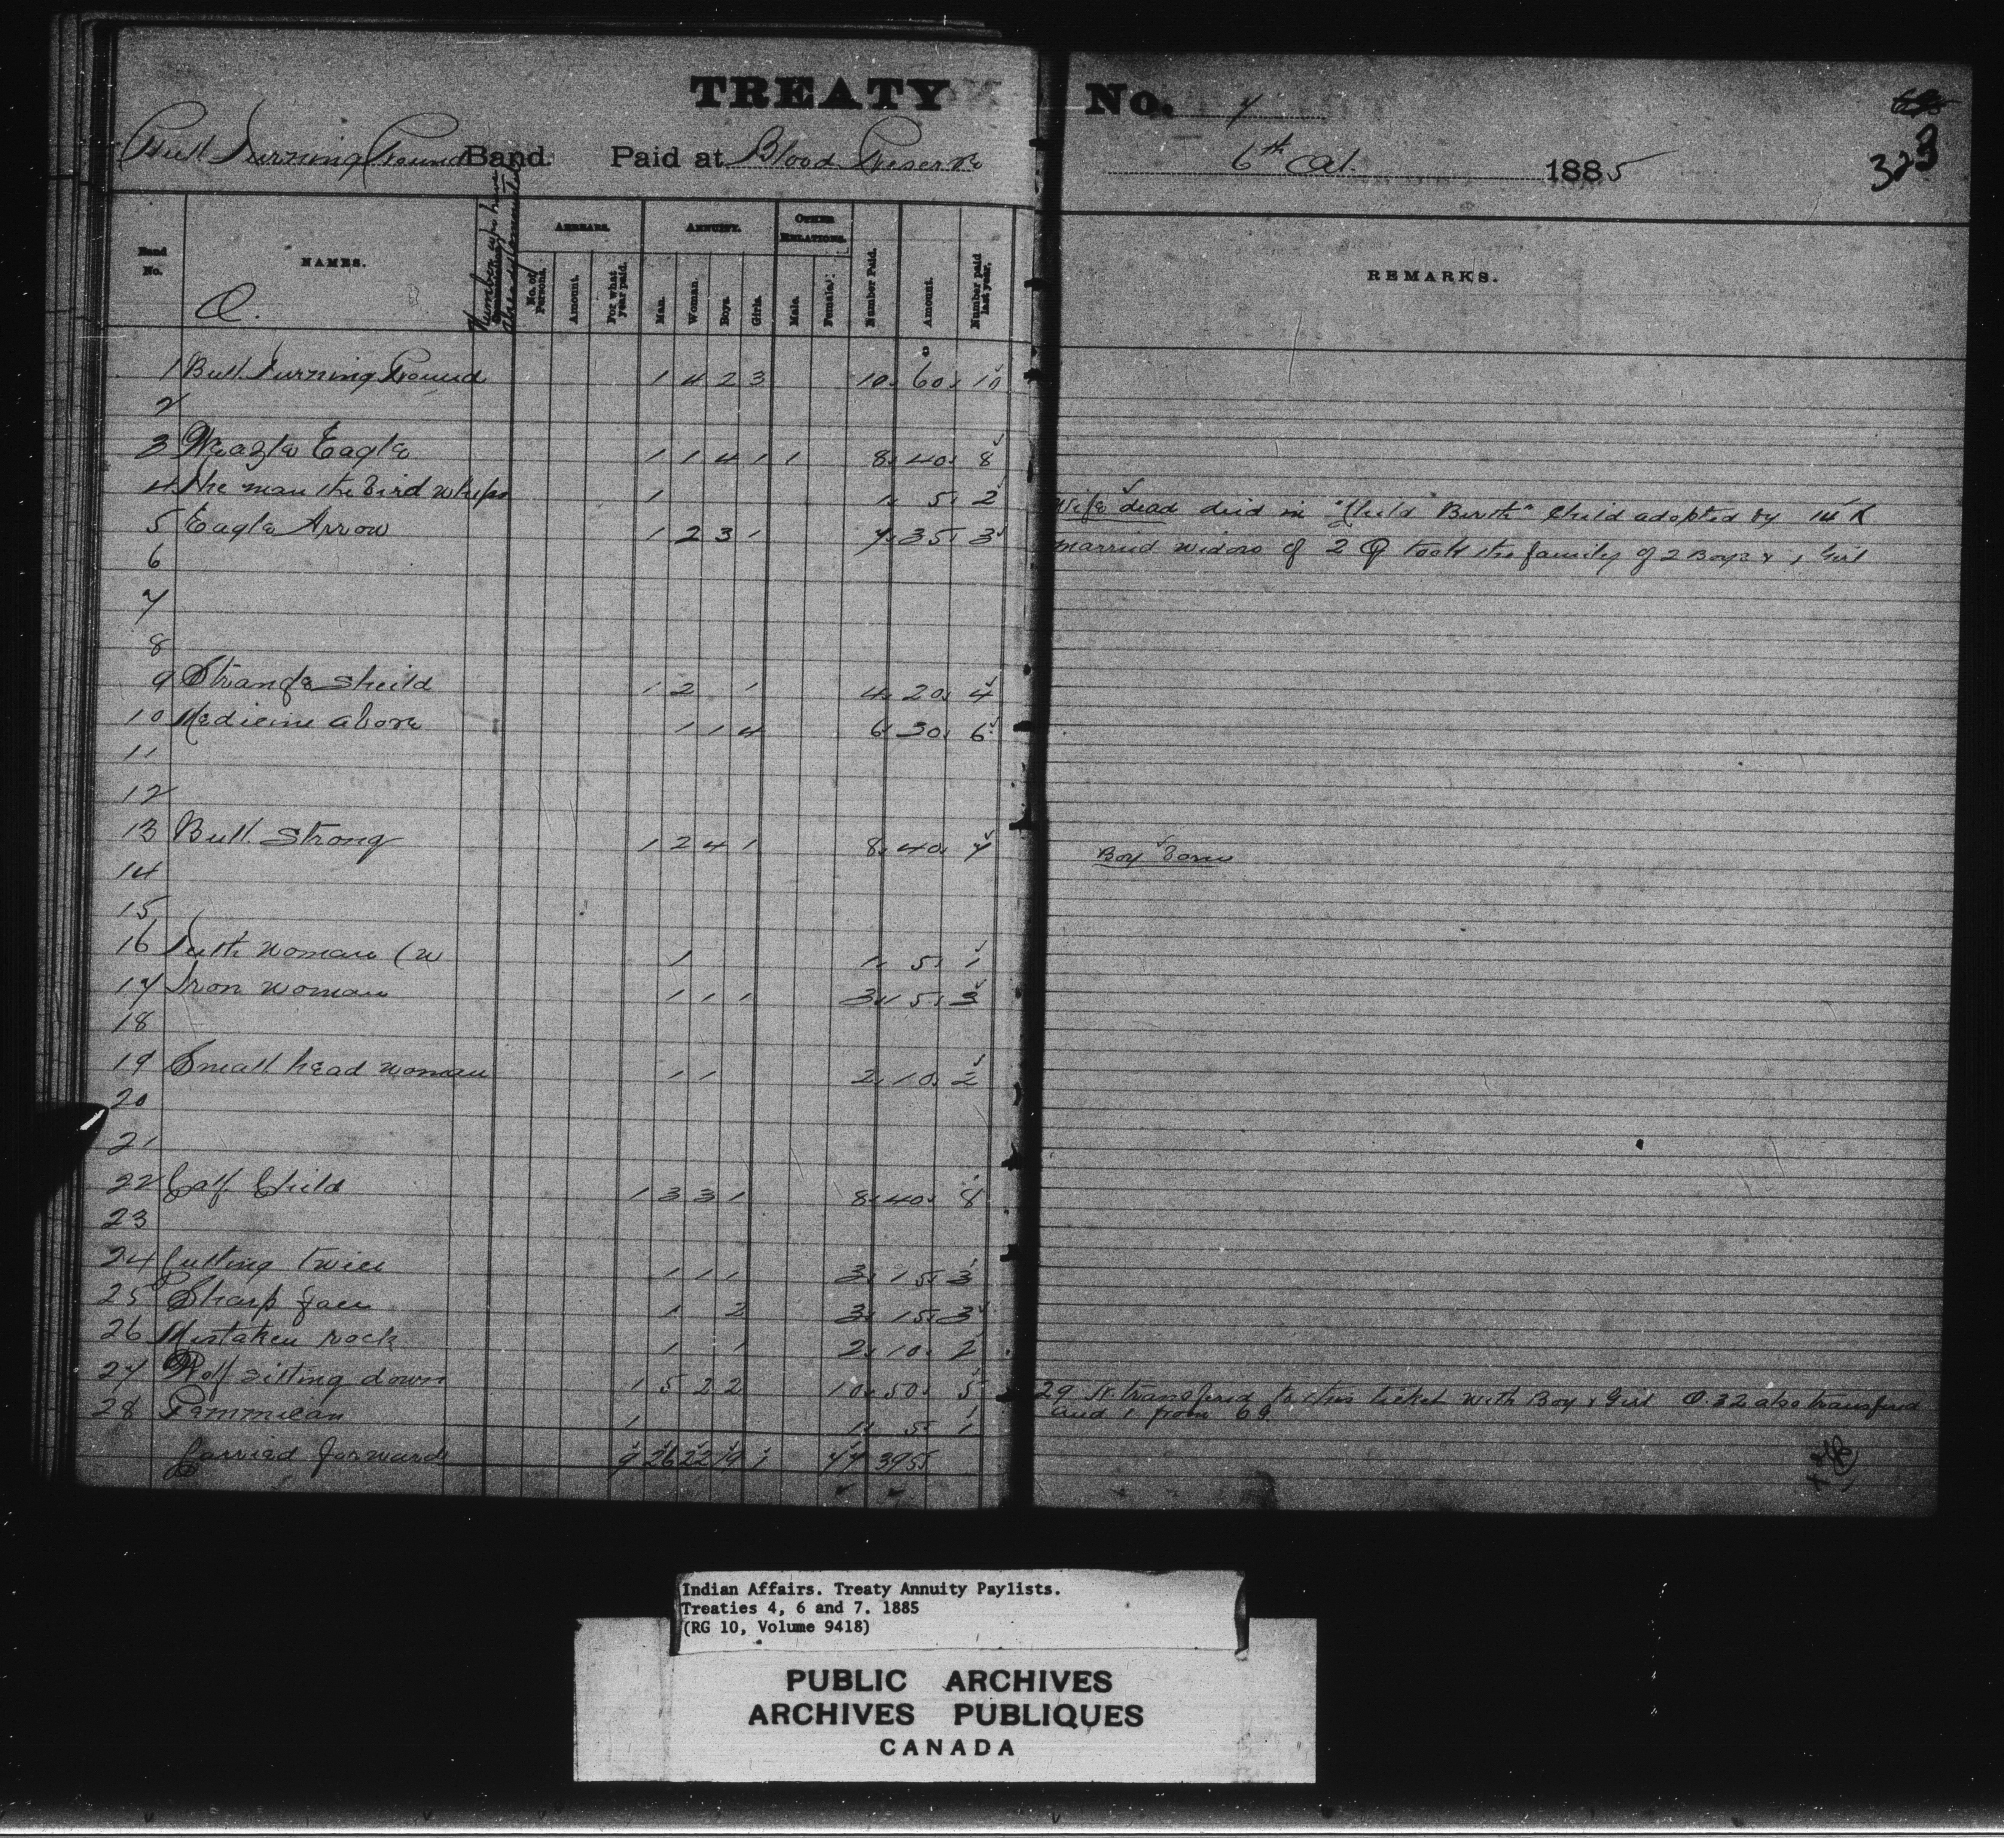 TREATY No. 7
Bull Turning Round Band. Paid at Blood Reserve 6th Oct. 1885
323
Band No.
NAMES.
Q.
ARREARS.
No. of Persons.
Amount.
For what year paid.
ANNUITY.
Man.
Woman.
Boys.
Girls.
OTHER RELATIONS.
Male.
Female.
Number Paid.
Amount.
Number paid last year.
REMARKS.
1 Bull Turning Round 1 4 2 3 10 60 10
2
3 Weazle Eagle 1 1 4 1 1 8 40 8
4 The man the bird whips 1 1 5 2 Wife dead died in "Child Birth" Child adopted by 14 K
5 Eagle Arrow 1 2 3 1 7 35 3 married widow of 2 Q took the family of 2 Boys & 1 Girl
6
7
8
9 Strange Sheild 1 2 1 4 20 4
10 Medicine above 1 1 4 6 30 6
11
12
13 Bull Strong 1 2 4 1 8 40 7 Boy born
14
15
16 woman (w 1 1 5 1
17 Iron woman 1 1 1 3 15 3
18
19 Small head woman 1 1 2 10 2
20
21
22 Calf Child 1 3 3 1 8 40 8
23
24 Cutting twice 1 1 1 3 15 3
25 Sharp face 1 2 3 15 3
26 Mistaken rock 1 1 2 10 2
27 Wolf sitting down 1 5 2 2 10 50 5 29 transfered to this ticket with Boy & Girl Q. 32 also transfered
and 1 from 69
28 Pemmican 1 1 5 1
Carried forward 9 26 22 19 1 77 395
Indian Affairs. Treaty Annuity Paylists.
Treaties 4, 6 and 7. 1885
(RG 10, Volume 9418)
PUBLIC ARCHIVES
ARCHIVES PUBLIQUES
CANADA